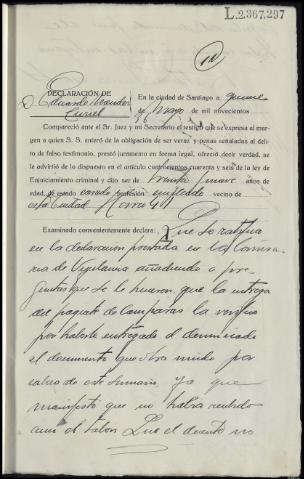 L.2.367.297
10
DECLARACIÓN DE
D. Eduardo Mendez
Curiel
En la ciudad de Santiago a quince
de Mayo de mil novecientos
Compareció ante el Sr. Juez y mi Secretario el testigo que se expresa al mar-
gen a quien S. S. enteró de la obligación de ser veraz y penas señaladas al delito
de falso testimonio, prestó juramento en forma legal, ofreció decir verdad, se
le advirtió de lo dispuesto en el artículo cuatrocientos cuarenta y seis de la ley de
Enjuiciamiento criminal y dijo ser de treinta y nueve años de
edad, de estado casado profesión empleado vecino de
esta Ciudad
Examinado convenientemente declara: Que se ratifica
en la declaracion prestada en la Comisa-
ria de Vigilancia añadiendo a pre-
guntas que se le hicieron, que la entrega
del paquete de lamparas la
por haberle entregado el denunciado
el documento que obra unido por
cabeza de este sumario, ya que
manifestó que no habia recibido
aun el talon. Que el no